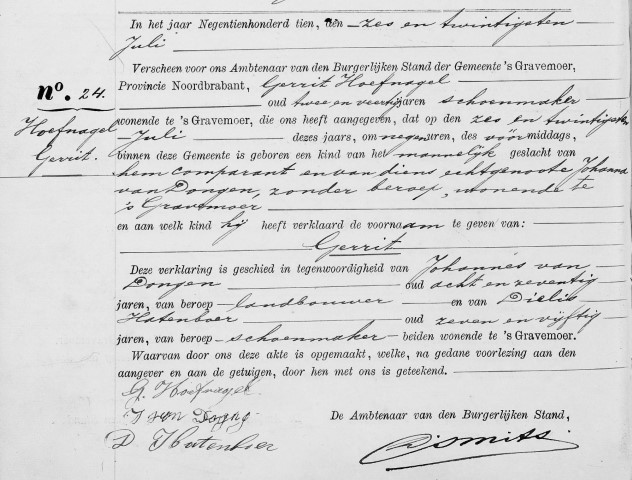 In het jaar Negentienhonderd tien, den zes en twintigsten
Juli
Verscheen voor ons Ambtenaar van den Burgerlijken Stand der Gemeente 's Gravemoer,
Provincie Noordbrabant, Gerrit Hoefnagel
oud twee en veertig jaren schoenmaker
wonende te 's Gravemoer, die ons heeft aangegeven, dat op den zes en twintigsten
Juli dezes jaars, om negen uren, des vóór middags,
binnen deze Gemeente is geboren een kind van het mannelijk geslacht van
hem comparant en van diens echtgenoote Johanna
van Dongen, zonder beroep, wonende te
's Gravemoer
en aan welk kind hij heeft verklaard de voornaam te geven van:
Gerrit
Deze verklaring is geschied in tegenwoordigheid van Johannes van
Dongen oud acht en zeventig
jaren, van beroep landbouwer en van Dielis
Hatenboer oud zeven en vijftig
jaren, van beroep schoenmaker beiden wonende te 's Gravemoer.
Waarvan door ons deze akte is opgemaakt, welke, na gedane voorlezing aan den
aangever en aan de getuigen, door hen met ons is geteekend.
G. Hoefnagel
J van Dongen
D Hatenboer
De Ambtenaar van den Burgerlijken Stand,
Smits
no. 24.
Hoefnagel
Gerrit.